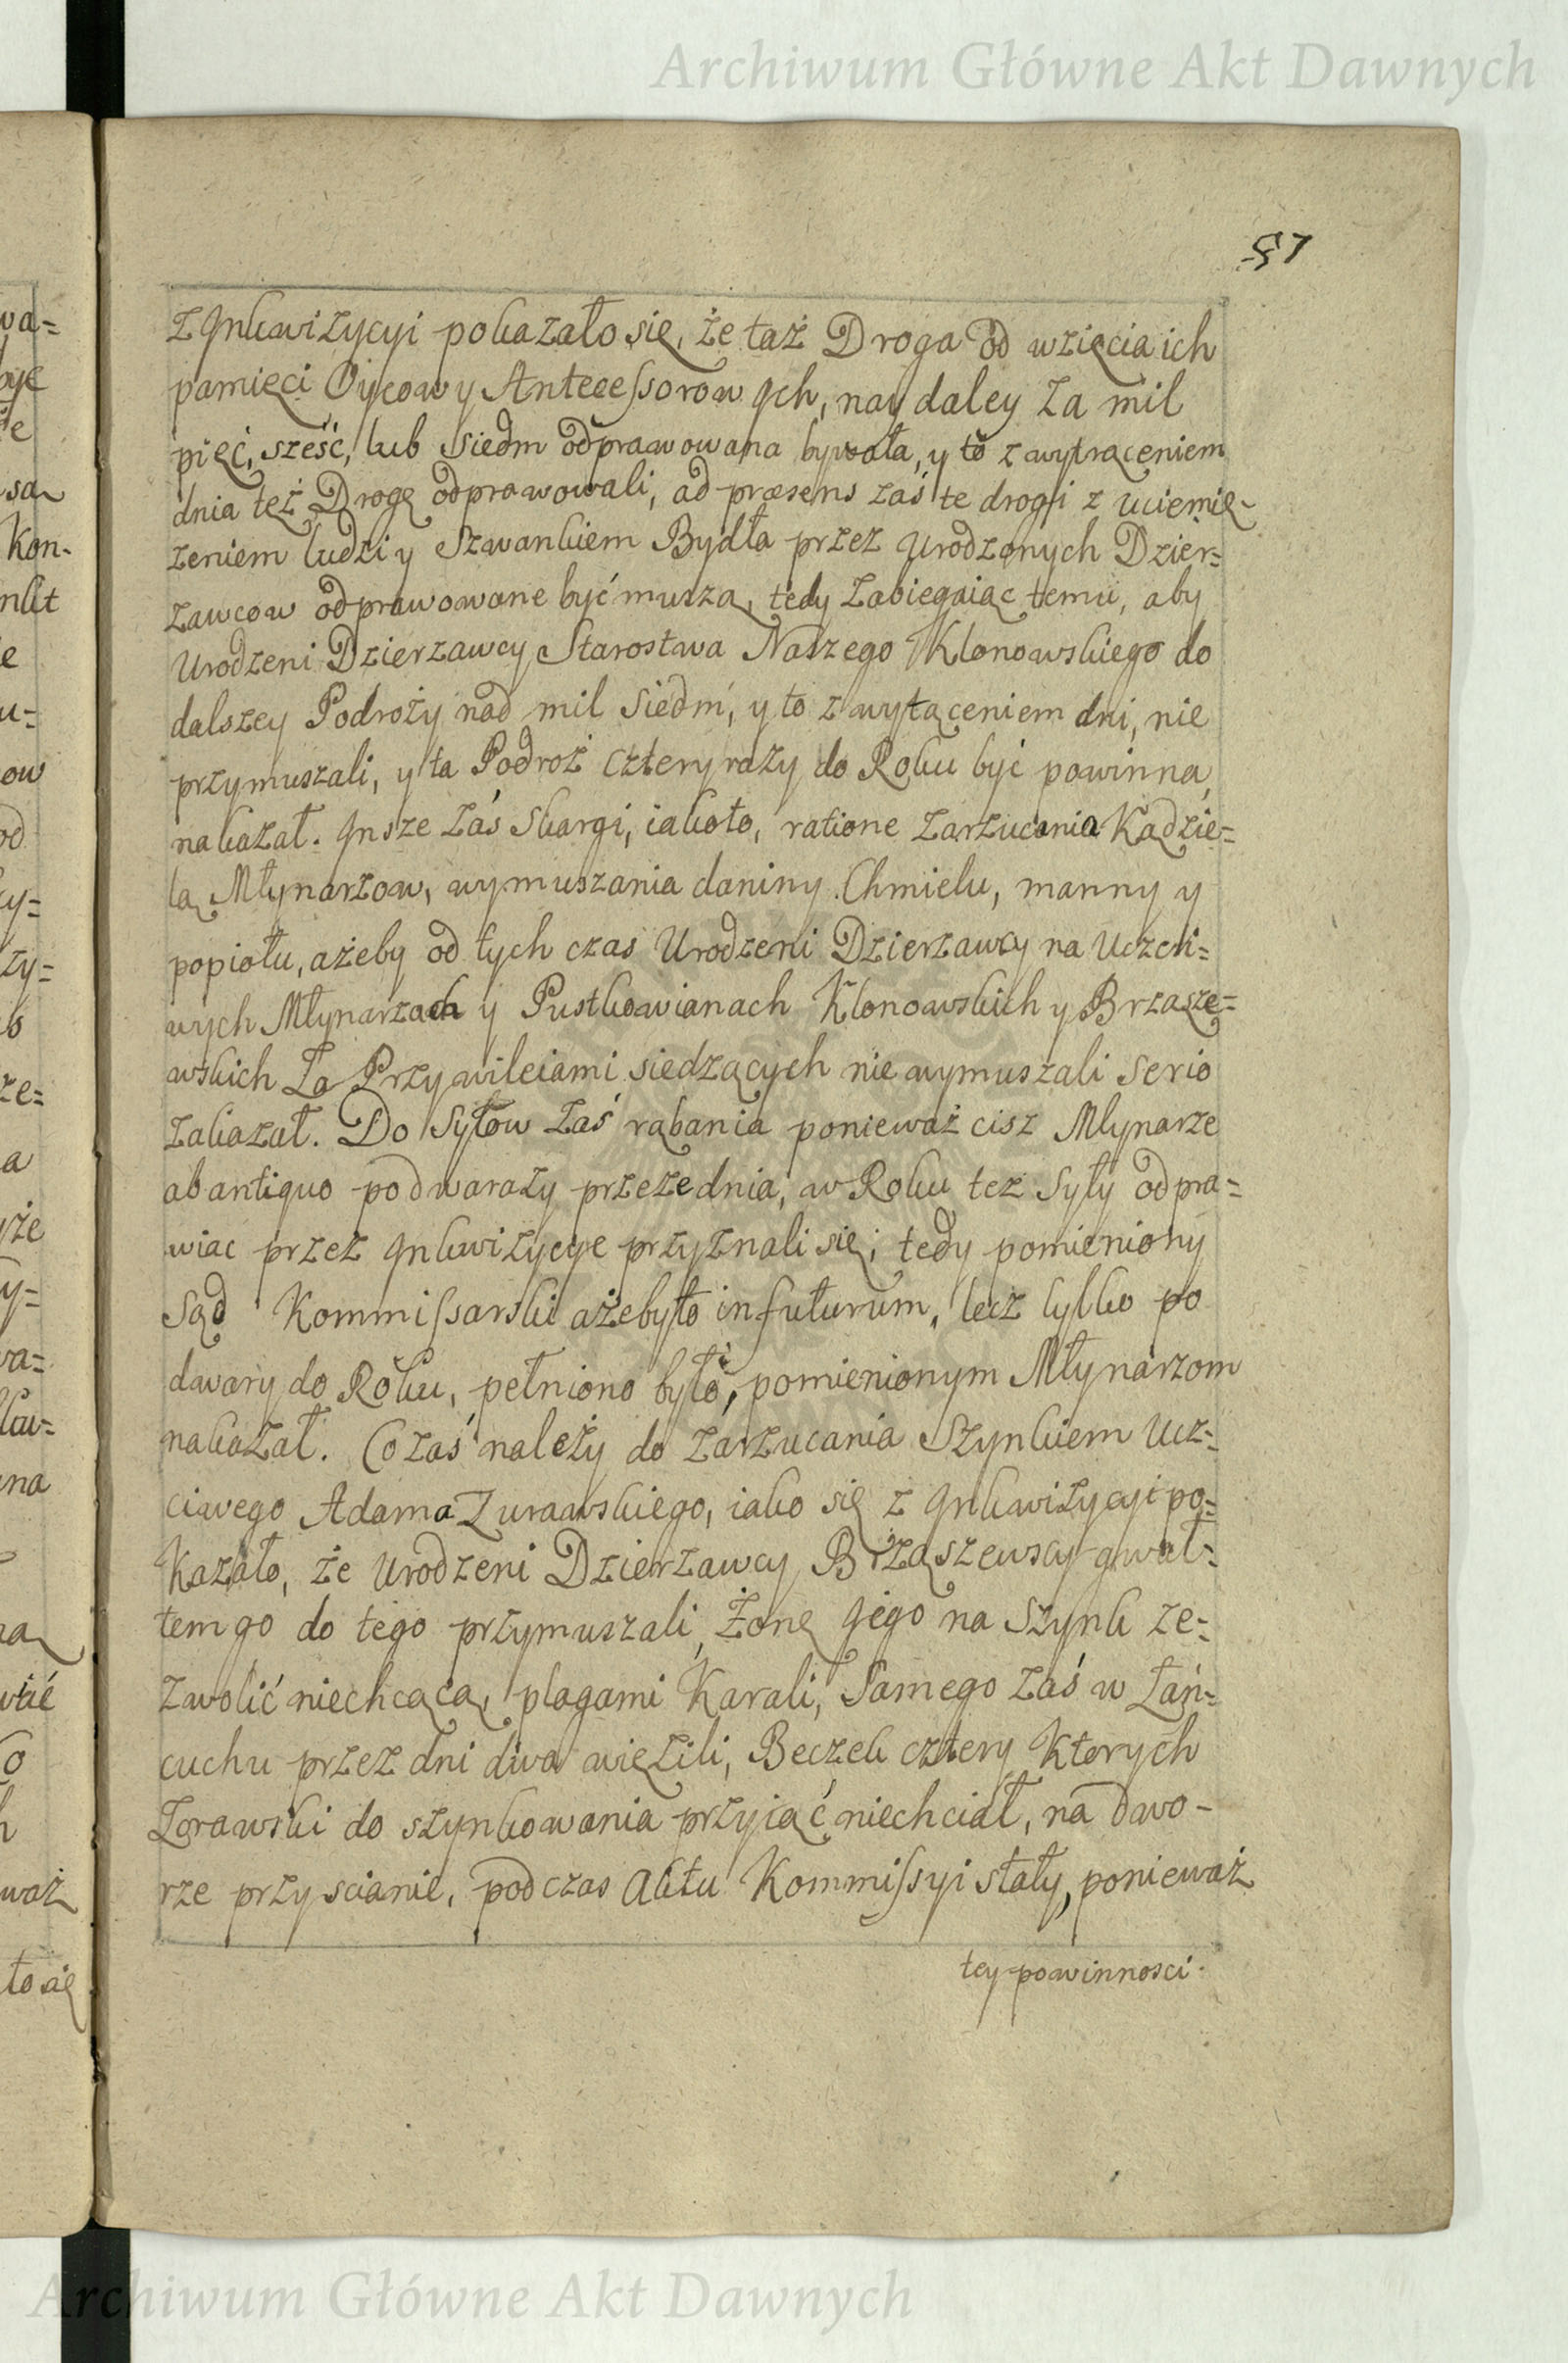 Archiwum Główne Akt Dawnych
57
z Inkwizycyi pokazało się, że taż Droga od wzięcia ich
pamięci Oycow y Antecessorow Ich, nay daley za mil
pięć, sześć, lub siedm odprawowana bywała, y to z wytrąceniem
dnia też Drogę odprawowali, ad præsens zaś te drogi z uciemię-
zeniem ludzi y Szwankiem Bydła przez Urodzonych Dzier=
zawcow odprawowane być muszą, tedy Zabiegaiąc temu, aby
Urodzeni Dzierzawcy Starostwa Naszego Klonowskiego do
dalszey Podroży nad mil siedm, y to z wytąceniem dni, nie
przymuszali, y ta Podroż cztery razy do Roku być powinna,
nakazał. Insze zaś Skargi, iakoto, ratione Zarzucania Kądzie=
lą Młynarzow, wymuszania daniny Chmielu, manny y
popiołu, ażeby od tych czas Urodzeni Dzierzawcy na Uczci=
wych Młynarzach y Pustkowianach Klonowskich y Brząsze=
wskich Za Przywileiami siedzących nie wymuszali serio
zakazał. Do Syłow zaś rąbania ponieważ cisz Młynarze
ab antiquo po dwarazy przezednia, w Roku tez Syły odpra=
wiac przez Inkwizycye przyznali się; tedy pomieniony
Sąd Kommissarski ażebyto in futurum, lecz tylko po
dwary do Roku, pełniono było, pomienionym Młynarzom
nakazał. Co zaś należy do zarzucania Szynkiem Ucz=
ciwego Adama Zurawskiego, iako się z Inkwizycyi po=
kazało, że Urodzeni Dzierzawcy Brząszewscy gwał=
tem go do tego przymuszali, Żonę Jego na Szynk ze=
zwolić niechcącą, plagami Karali, Samego zaś w Łań=
cuchu przez dni dwa więzili, Beczek cztery Ktorych
Zorawski do szynkowania przyiąć niechciał, na dwo-
rze przy scianie, podczas Aktu Kommissyi stały, ponieważ
tey powinnosci
Archiwum Główne Akt Dawnych